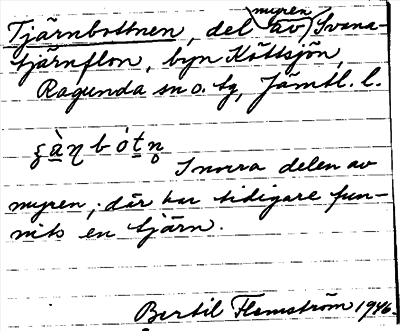 Tjärnbottnen, del av (myren) Svana-
tjärnflon, byn Köttsjön,
Ragunda sn o. tg, Jämtl. l.
I norra delen av
myren; där har tidigare fun-
nits en tjärn.
Bertil Flemström 1946.